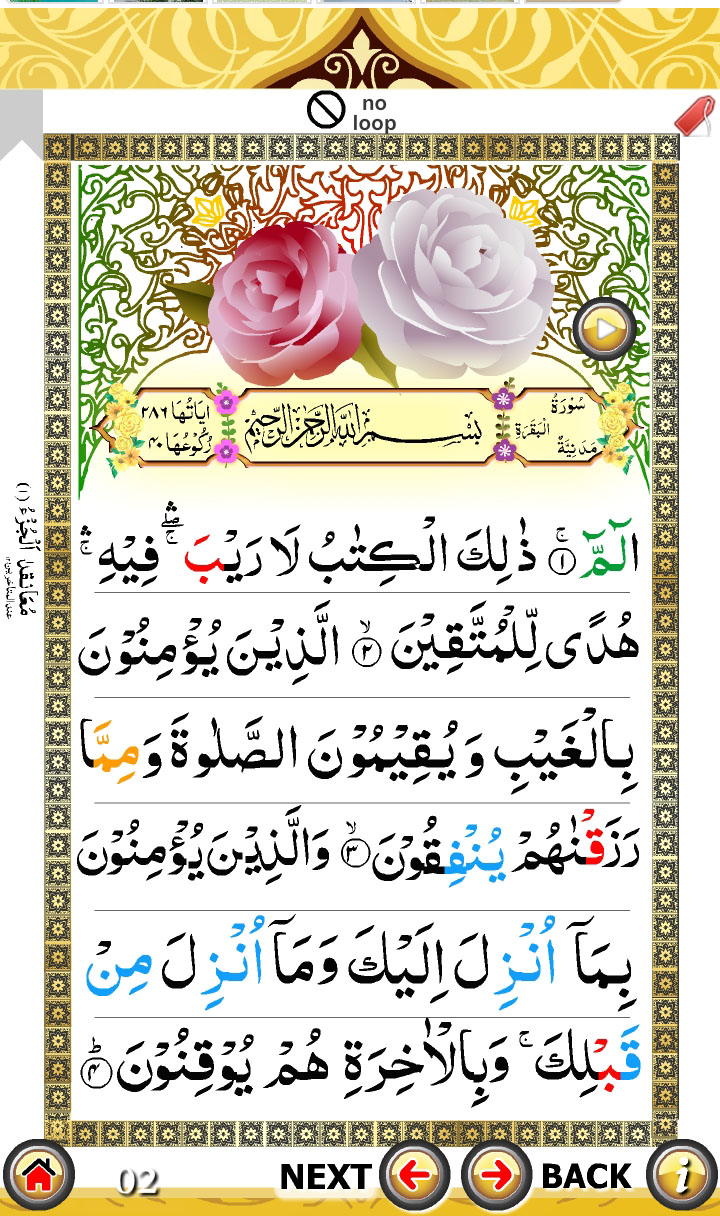 no
loop
سُوْرَةُ
الْبَقَرَةِ
مَدَنِيَّةٌ
بِسْمِ اللّٰهِ الرَّحْمٰنِ الرَّحِيْمِ
اٰيَاتُهَا ٢٨٦
رُكُوْعُهَا ۴۰
الٓمّٓ ۚ﴿۱﴾ ذٰلِكَ الْكِتٰبُ لَا رَيْبَ ۛۖ فِيْهِ ۛۚ
هُدًى لِّلْمُتَّقِيْنَ ۙ﴿۲﴾ الَّذِيْنَ يُؤْمِنُوْنَ
بِالْغَيْبِ وَيُقِيْمُوْنَ الصَّلٰوةَ وَمِمَّا
رَزَقْنٰهُمْ يُنْفِقُوْنَ ۙ﴿۳﴾ وَالَّذِيْنَ يُؤْمِنُوْنَ
بِمَاۤ اُنْزِلَ اِلَيْكَ وَمَاۤ اُنْزِلَ مِنْ
قَبْلِكَ ۚ وَبِالْاٰخِرَةِ هُمْ يُوْقِنُوْنَ ؕ﴿۴﴾
مُعَانَقَة اَلْجُزْءُ (۱)
02
NEXT
BACK
i